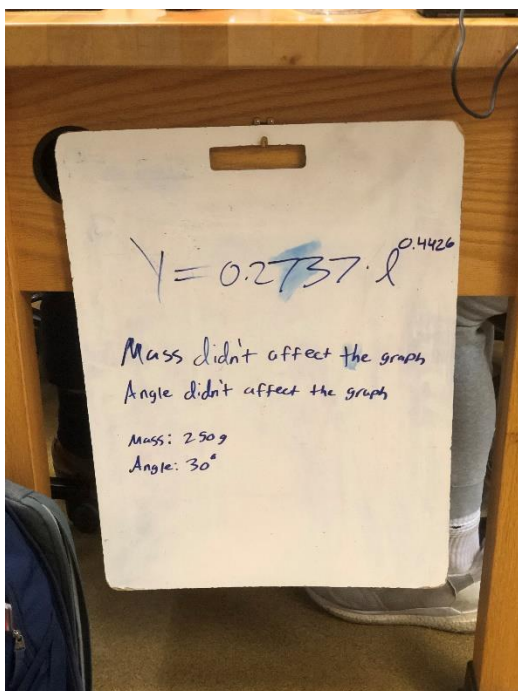 Y = 0.2737 · l^0.4426
Mass didn't affect the graph
Angle didn't affect the graph
Mass: 250g
Angle: 30°